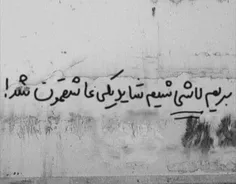 بریم لاشی شیم شاید یکی عاشقمون شد!